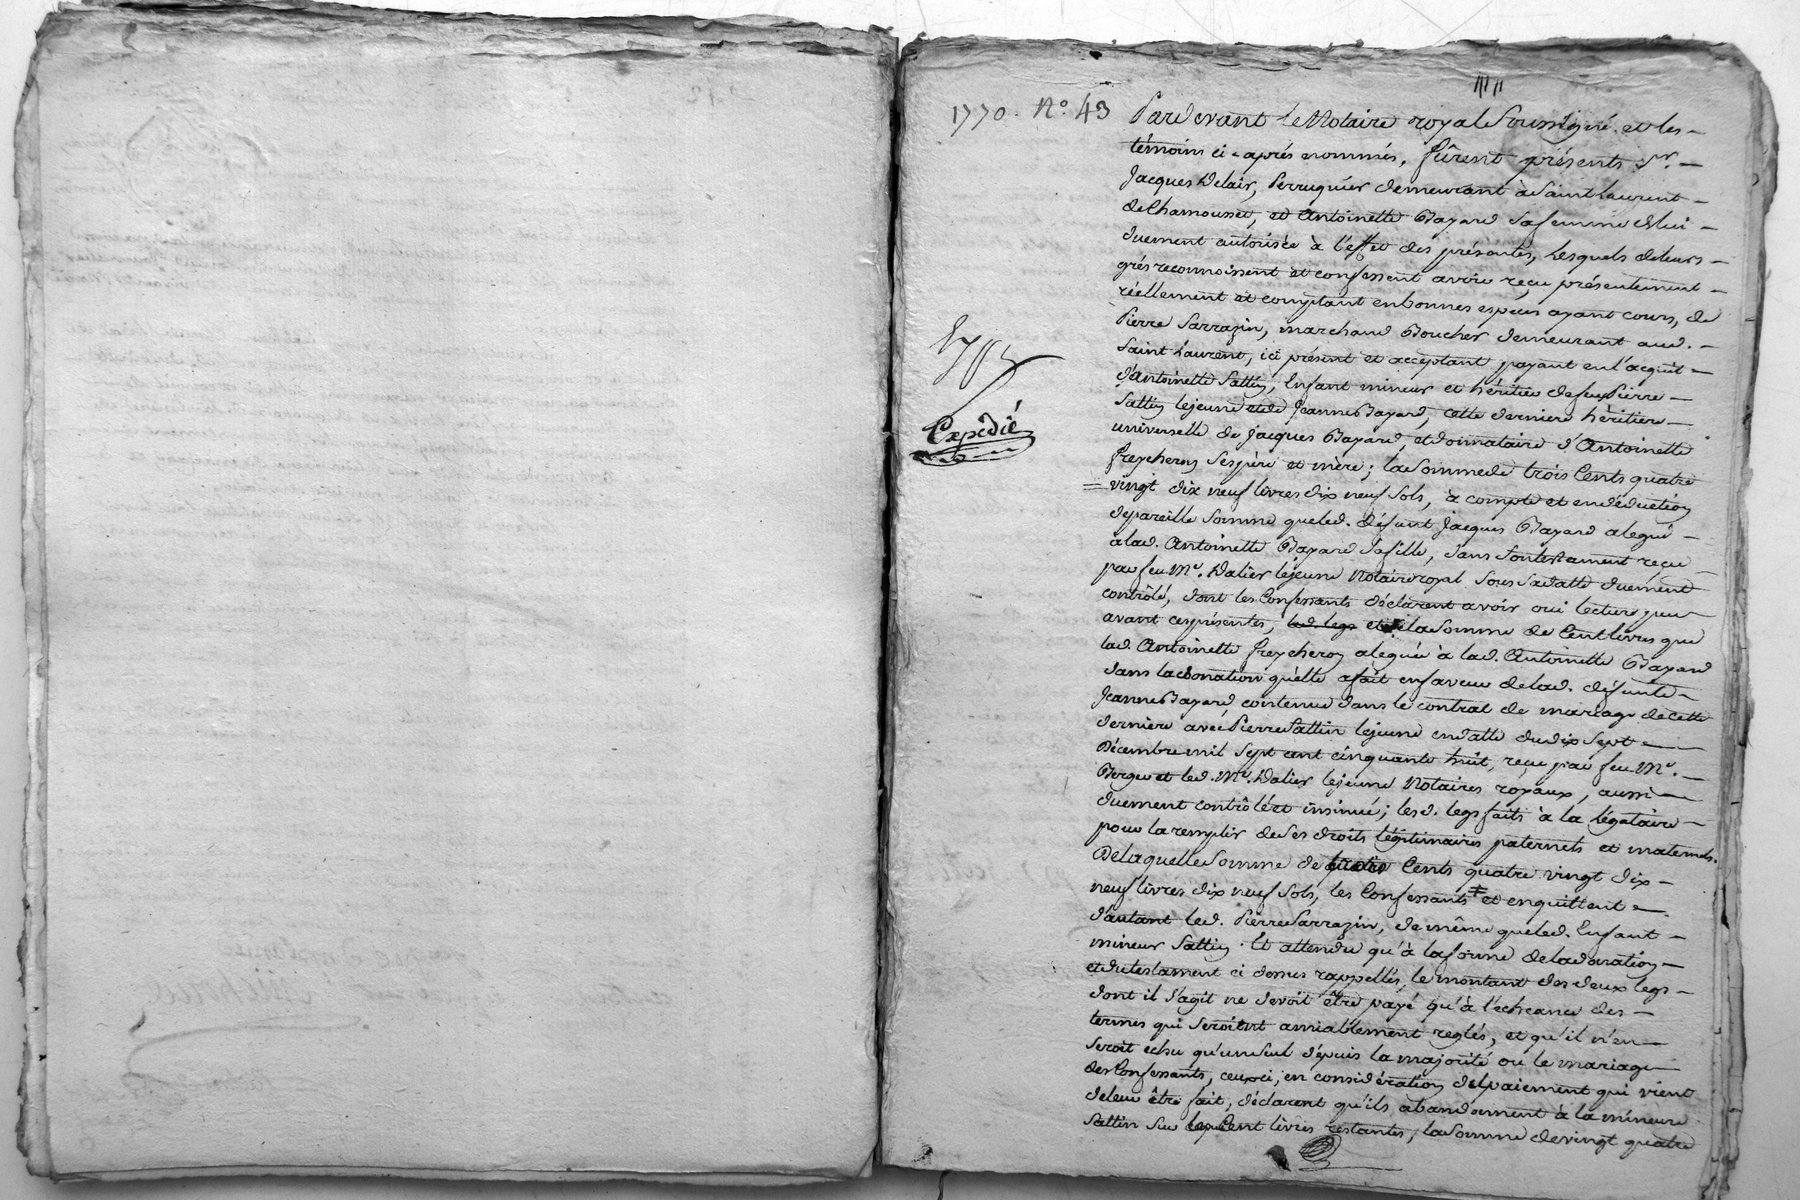 1770. N.o 43
Pardevant le Notaire royal Soussigné. et les
témoins ci-aprés nommés, fûrent présents Sr.
Jacques Delair, Perruquier demeurant à Saint Laurent
de Chamousset, et Antoinette Bayard sa femme de lui
duement autorisée à l'effet des présentes, Lesquels de leurs
grés reconnoissent et confessent avoir reçu présentement
réellement et comptant en bonnes especes ayant cours, de
Pierre Sarrazin, marchand Boucher demeurant aud.
Saint Laurent, ici présent et acceptant payant en l'acquit
d'Antoinette Sattin, Enfant mineur et héritier de feu Pierre
Sattin lejeune et de Jeanne Bayard, cette derniere héritiere
universelle de Jacques Bayard, et donnataire d'Antoinette
freycheron Ses père et mère; la Somme de trois Cents quatre
vingt dix neuf livres dix neuf Sols, à compte et en déduction
de pareille Somme que led. défunt Jacques Bayard a legué
à lad. Antoinette Bayard Sa fille, dans Son testament reçu
par feu Me. Dalier lejeune Notaire royal Sous Sa datte duement
contrôlé, dont les Confessants déclarent avoir oui lecture peu
avant ces présentes, led. legs et de la Somme de Cent livres que
lad. Antoinette freycheron a leguée à lad. Antoinette Bayard
dans la donation qu'elle a fait en faveur de lad. défunte
Jeanne Bayard, contenue dans le contrat de mariage de cette
derniere avec Pierre Sattin lejeune en datte du dix Sept
Décembre mil Sept cent cinquante huit, reçu par feu Me.
Berger et led. Me. Dalier lejeune Notaires royaux, aussi
duement contrôlé et insinué; lesd. legs faits à la légataire
pour la remplir de Ses droits légitimaires paternels et maternels.
De laquelle Somme de Cents quatre vingt dix
neuf livres dix neuf Sols, les Confessants et en quittent
d'autant led. Pierre Sarrazin, de même que led. Enfant
mineur Sattin. Et attendu qu'à la forme de la donation
et du testament ci dessus rappellés, le montant des deux legs
dont il s'agit ne devoit être payé qu'à l'echeance des
termes qui Seroient amiablement reglés, et qu'il n'en
Seroit echu qu'un Seul depuis la majorité ou le mariage
des Confessants, ceux ci, en considération du paiement qui vient
de leur être fait, déclarent qu'ils abandonnent à la mineure
Sattin Sur les Cent livres restantes, la Somme de vingt quatre
Expédié